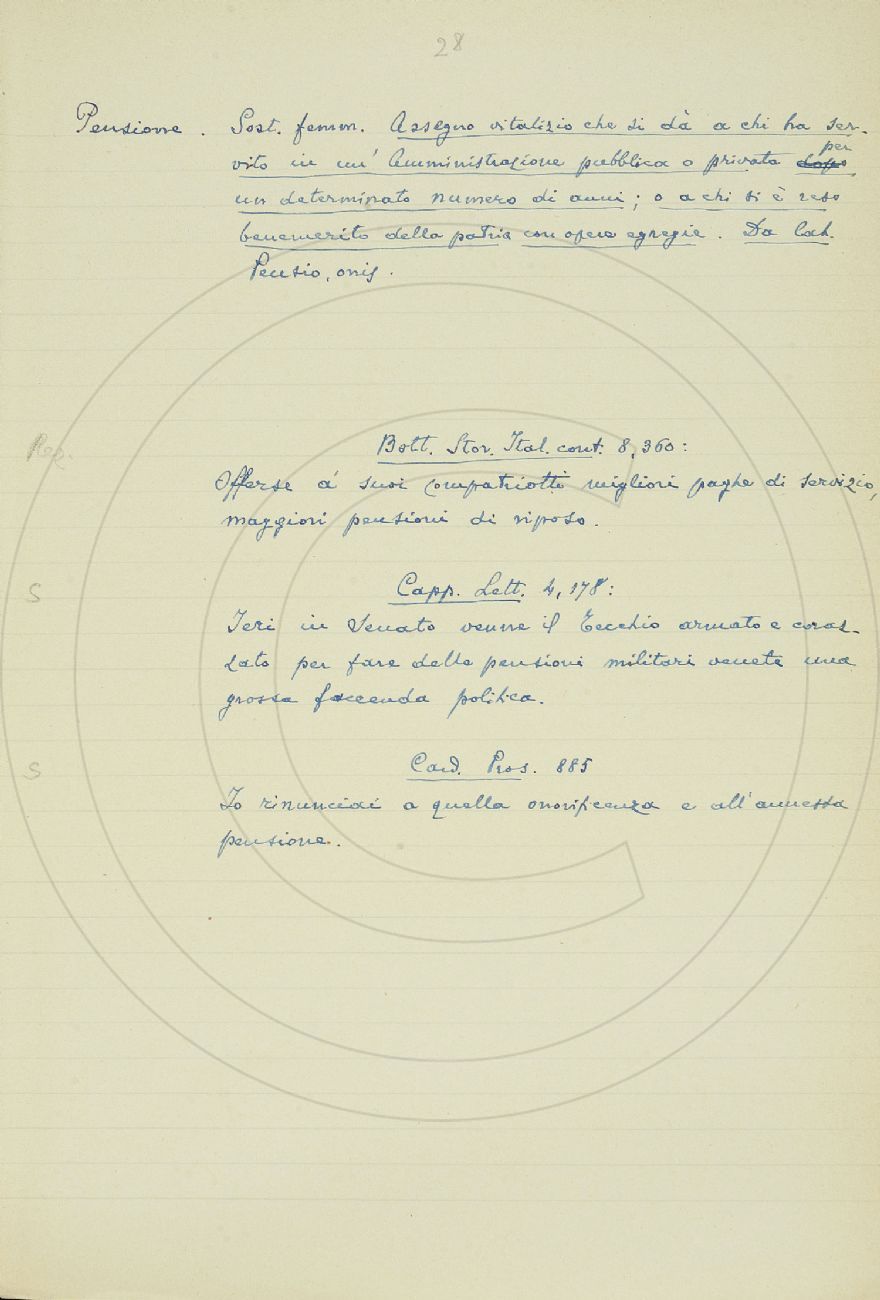 28
Pensione. Sost. femm. Assegno vitalizio che si dà a chi ha ser-
per
vito in un' Amministrazione pubblica o privata dopo
un determinato numero di anni; o a chi si è reso
benemerito della patria con opere egregie. Da lat.
Pensio, onis.
Bott. Stor. Ital. cont. 8, 360:
Offerse a' suoi compatriotti migliori paghe di servizio,
maggiori pensioni di riposo.
S Capp. Lett. 4, 178:
Ieri in Senato venne il Tecchio armato e coraz-
zato per fare delle pensioni militari venete una
grossa faccenda politica.
S Card. Pros. 885
Io rinunciai a quella onorificenza e all'annessa
pensione.